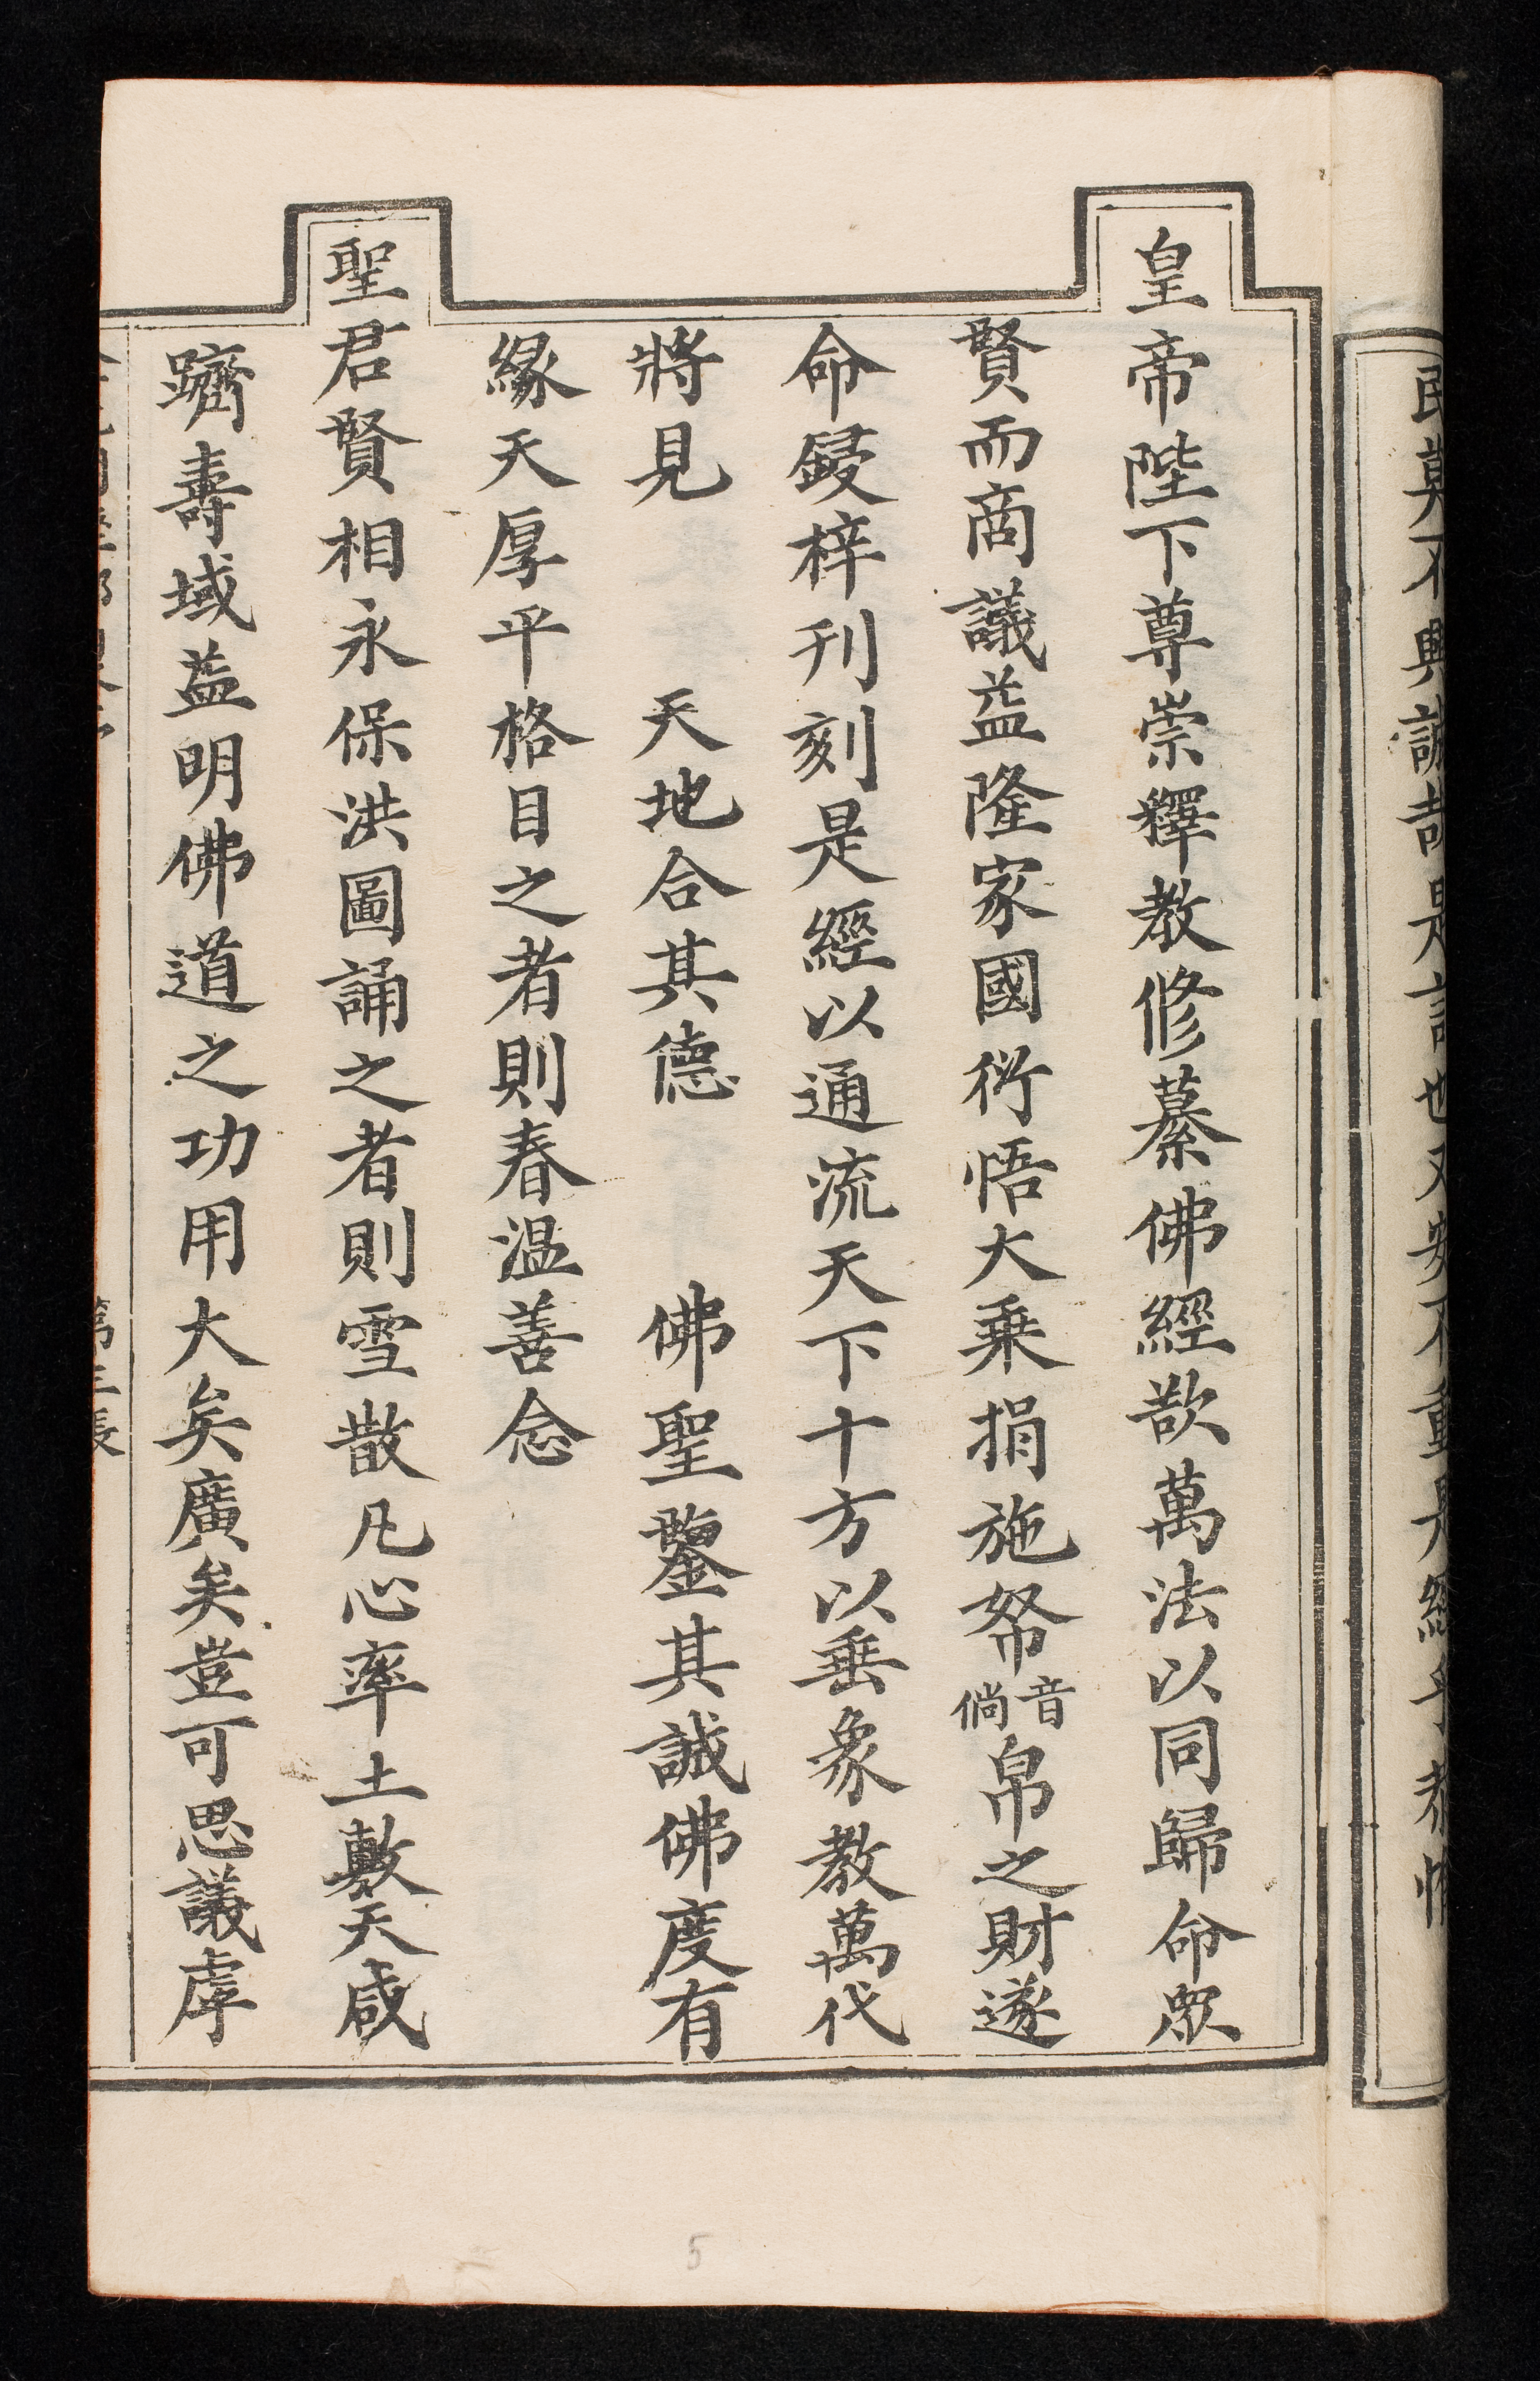 皇帝陛下尊崇釋教修纂佛經歆萬法以同歸命眾
賢而商議益隆家國衍悟大乗捐施帑音倘帛之財遂
命鋟梓刊刻是經以通流天下十方以垂象教萬代
將見 天地合其德 佛聖鑒其誠佛度有
緣天厚平格目之者則春溫善念
聖君賢相永保洪圖誦之者則雪散凡心率土敷天咸
躋壽域益明佛道之功用大矣廣矣豈可思議虖
5